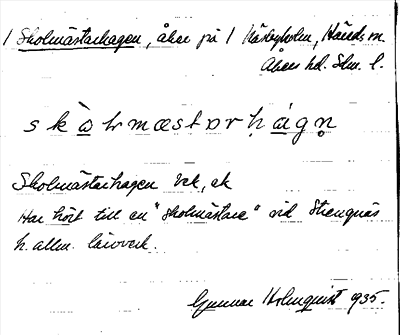 1 Skolmästarhagen, åker på 1 Näsbyholm, Härads sn.
Åkers hd. Slm. l.
skòlrmæstɒrhágn̥
Skolmästarhagen
Har hört till en "skolmästare" vid Strengnäs
h. allm. läroverk.
Gunnar Holmquist 1935.